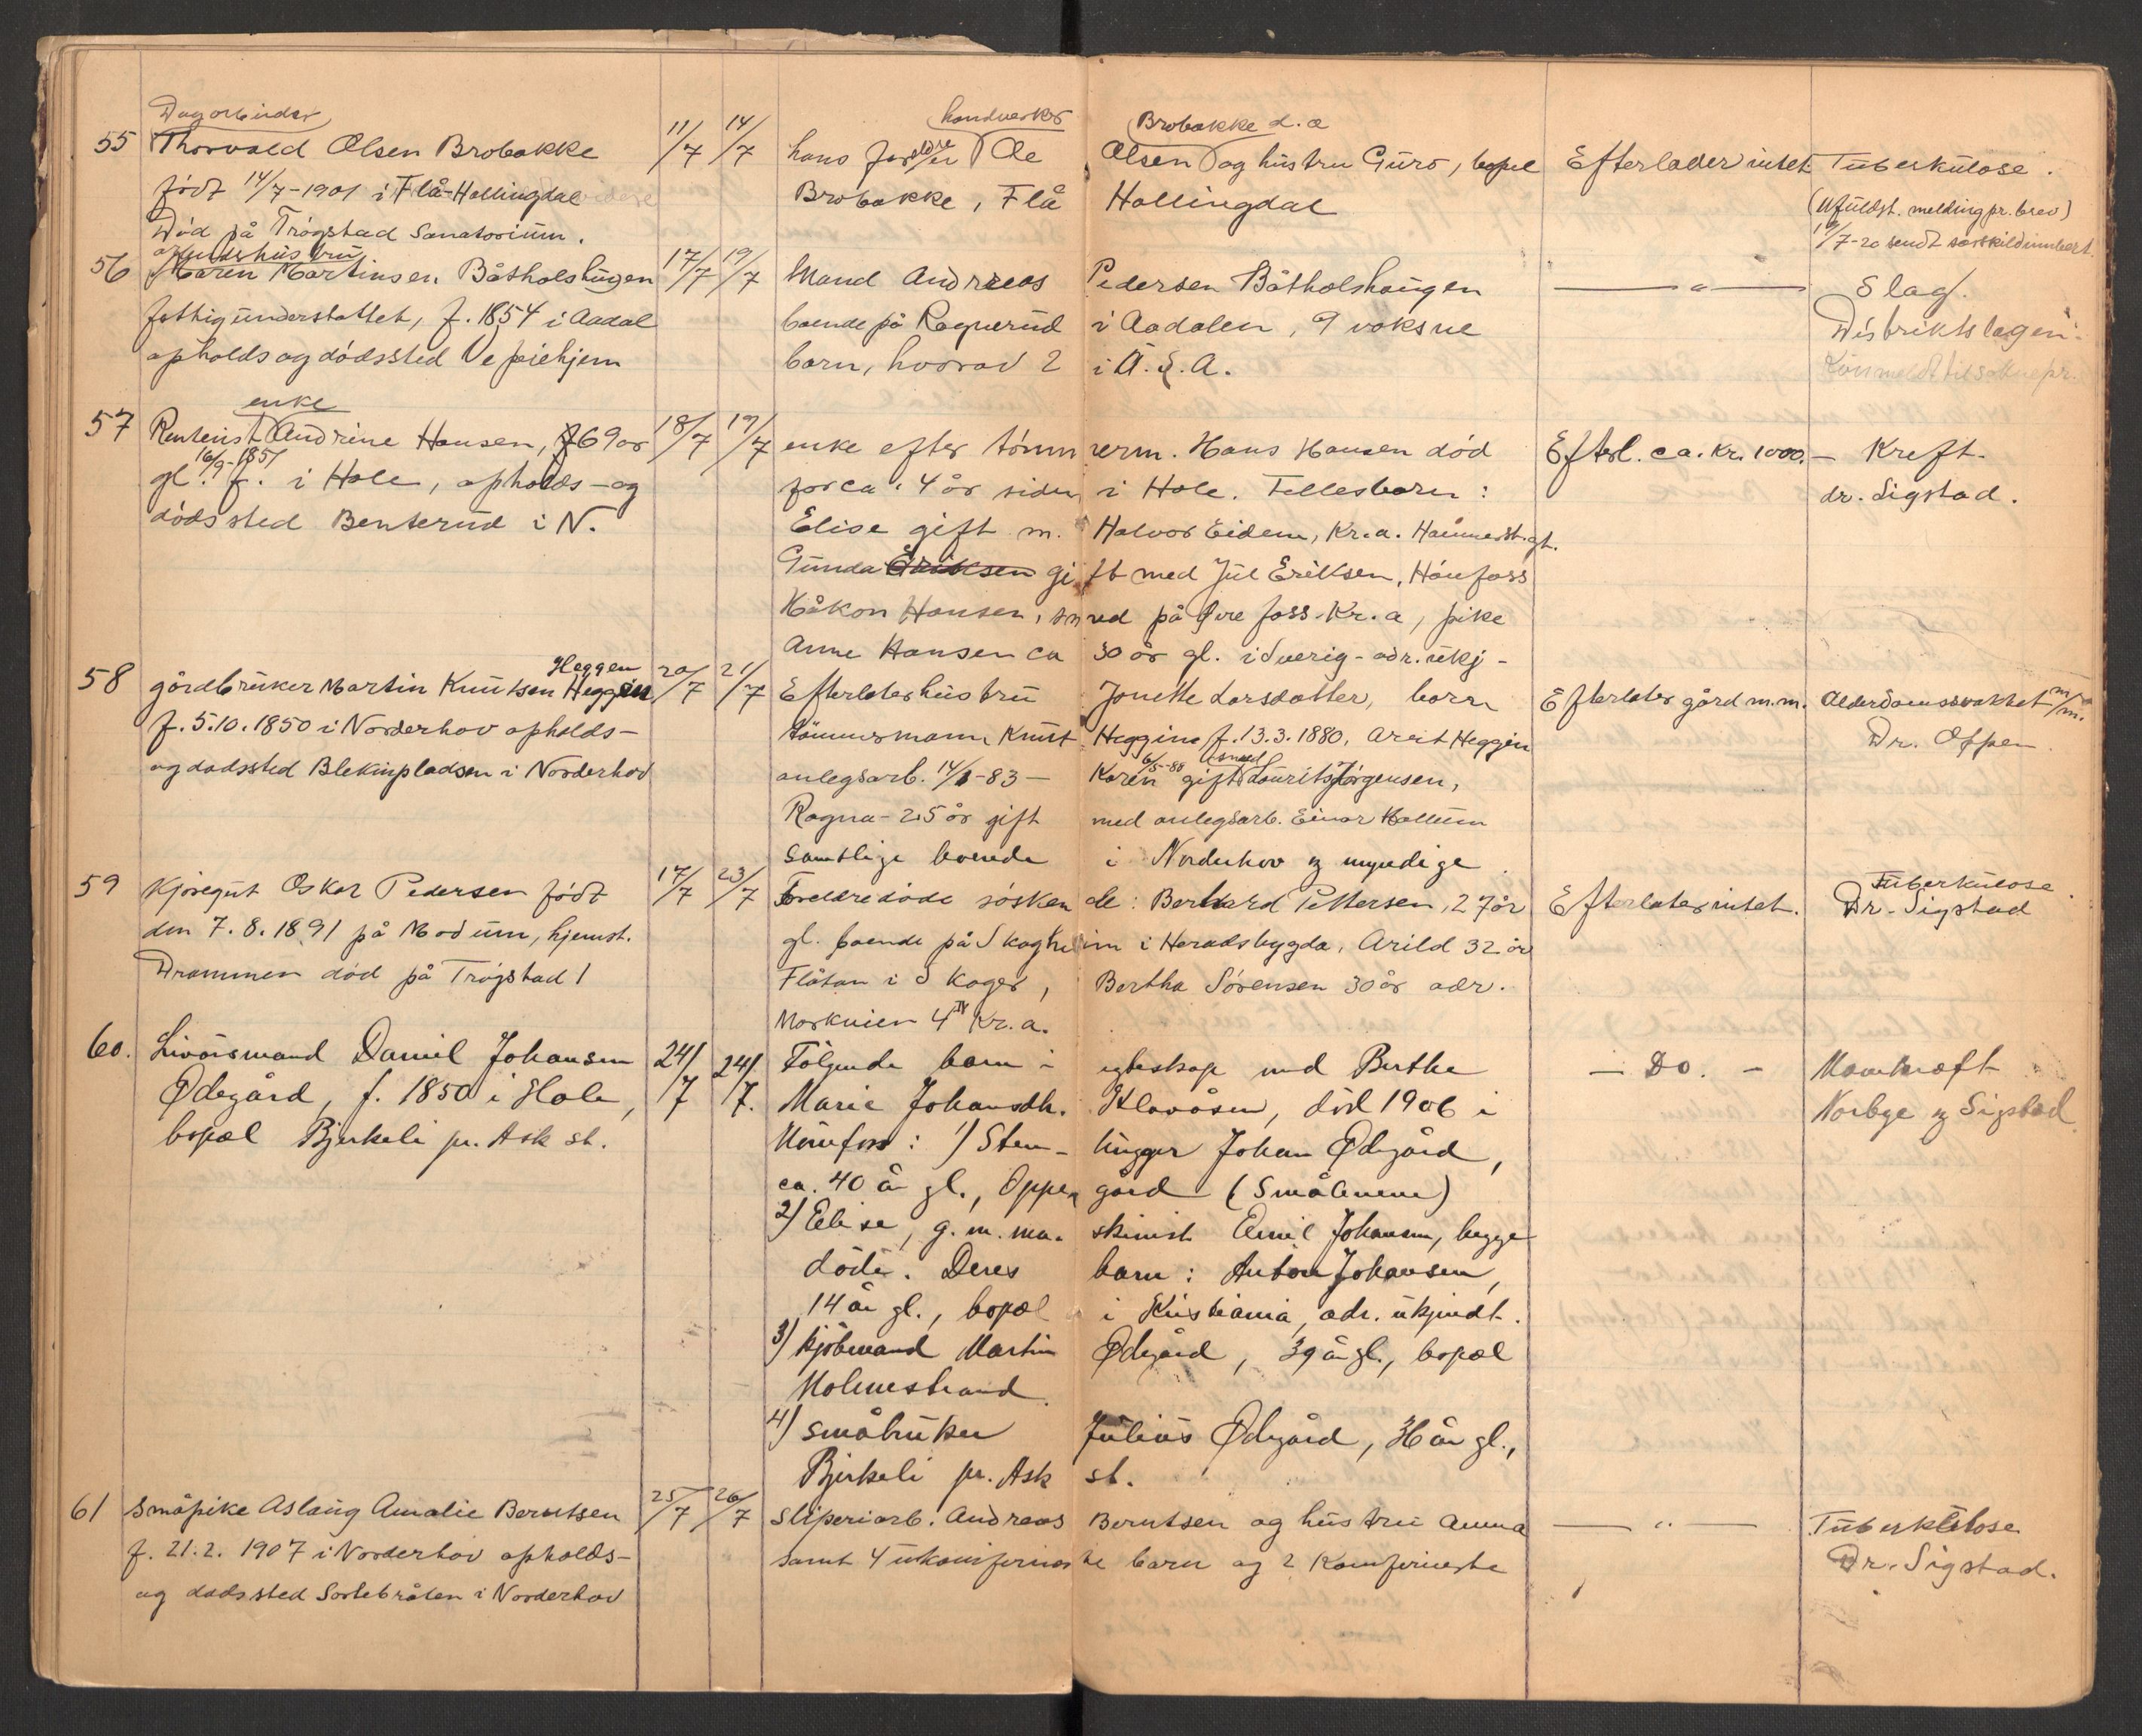 Dagarbeider
55 Thorvald Olsen Brobakke 11/7 14/7 hans forældre handverker Ole Olsen Brobakke d.a og hustru Guro, bopel Efterlader intet Tuberkulose.
født 14/7-1901 i Flå-Hallingdal Brobakke, Flå Hallingdal (Ufuldst. melding pr. brev)
Død på Trøgstad Sanatorium. /7-20 sendt
56 Maren Martinsen Båtholshaugen 17/7 19/7 Mand Andreas Pedersen Båtholshaugen — " — Slag.
fattigunderstøttet, f. 1854 i Aadal boende på Ragnerud i Aadalen, 9 voksne Distriktslægen.
opholds og dødssted Ve pleiehjem barn, hvorav 2 i U.S.A.
enke
57 Rentenist Andrine Hansen, 69 år 18/7 19/7 enke efter tømmerm. Hans Hansen død Efterl. ca. kr. 1000.— Kreft.
16/9-1851
gl. f. i Hole, opholds- og for ca. 4 år siden i Hole. Fellesbarn: dr. Sigstad.
dødssted Benterud i N. Elise gift m. Halvor Eidem, Kr.a. Hammerst.gt.
Gunda Eriksen gift med Jul Eriksen, Hønefoss
Håkon Hansen, smed på Øvre foss Kr.a, pike
Anne Hansen ca 30 år gl. i Sverig - adr. ukj -
Heggen
58 gårdbruker Martin Knutsen Heggen 20/7 21/7 Efterlater hustru Jonette Larsdatter, barn Efterlater gård m.m. Alderdomssvakhet m/m.
f. 5.10.1850 i Norderhov opholds- tømmermann Knut Heggine f. 13.3.1880, Arent Heggen Dr. Oppen.
og dødssted Blekinpladsen i Norderhov anlegsarb. 14/8-83 — Karen 6/5-88 gift Lourits Jørgensen,
Ragna - 25 år gift med anlegsarb. Einar Hallum
samtlige boende i Norderhov og myndige.
59 Kjøregut Oskar Pedersen født 17/7 23/7 Foreldre døde søskende: Bernhard Pettersen, 27 år Efterlater intet. Tuberkulose.
den 7.8.1891 på Modum, hjemst. gl. boende på Skogheim i Haradsbygda, Arild 32 år Dr. Sigstad
Drammen død på Trøgstad 1 Flåtan i Skoger, Bertha Sørensen 30 år adr.
Markveien 4 IV Kr.a.
60. Livøismand Daniel Johansen 24/7 24/7. Følgende barn i egteskap med Berthe — Do. — Mavekræft
Ødegård, f. 1850 i Hole, Marie Johansdtr. Klavåsen, død 1906 i Norbye og Sigstad
bopæl Bjerkeli pr. Ask st. Hønefoss: 1) Stenhugger Johan Ødegård,
ca. 40 år gl., Oppegård (Smålenene)
2) Elise, g. m. maskinist Emil Johansen, begge
døde. Deres barn: Anton Johansen,
14 år gl., bopæl i Kristiania, adr. ukjendt.
3) Kjøbmand Martin Ødegård, 39 år gl., bopæl
Holmestrand.
4) Småbruker Julius Ødegård, 36 år gl.,
Bjerkeli pr. Ask st.
61 Småpike Aslaug Amalie Berntsen 25/7 26/7 Sliperiarb. Andreas Berntsen og hustru Anna — " — Tuberkulose
f. 21.2. 1907 i Norderhov opholds- samt 4 ukonfirmerte barn og 2 Konfirmerte Dr. Sigstad.
og dødssted Sortebråten i Norderhov